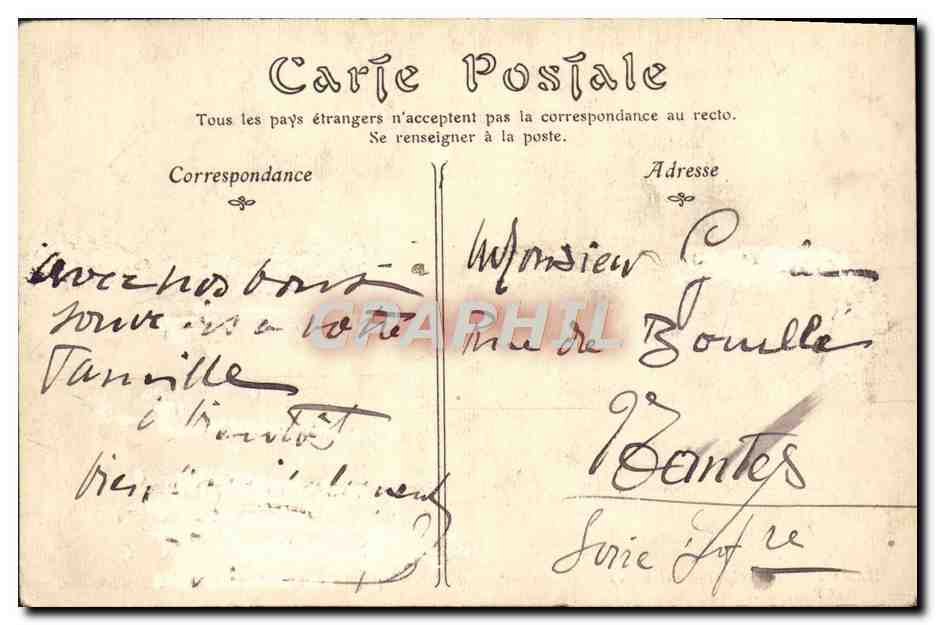 Carte Postale
Tous les pays étrangers n'acceptent pas la correspondance au recto.
Se renseigner à la poste.
Correspondance
avec nos bons
souvenirs a votre
famille
à bientôt
bien
Adresse
Monsieur
Rue de Bouillé
Nantes
Loire Infre
CPAPHIL